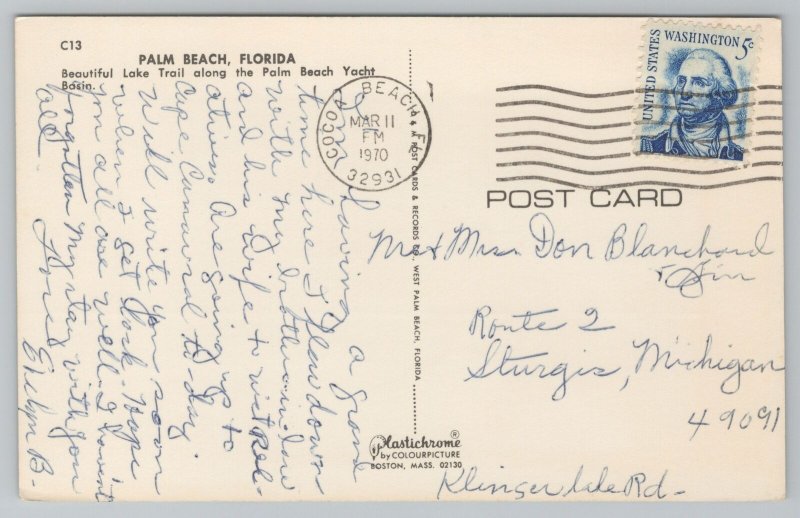 C13
PALM BEACH, FLORIDA
Beautiful Lake Trail along the Palm Beach Yacht
Basin.
Am having a grand
time here I flew down
with my brother-in-law
and his wife to visit Rel-
atives. Are going up to
Cape Canaveral to-day.
Will write you soon
when I get back. Hope
you all are well. I haven't
forgotten my stay with you
all.
Love
Evelyn B-
P & A POST CARDS & RECORDS CO., WEST PALM BEACH, FLORIDA
Plastichrome®
by COLOURPICTURE
BOSTON, MASS. 02130
COCOA BEACH, FL
MAR 11
PM
1970
32931
UNITED STATES
WASHINGTON 5c
POST CARD
Mr & Mrs. Don Blanchard
& Jim
Route 2
Sturgis, Michigan
49091
Klinger Lake Rd-